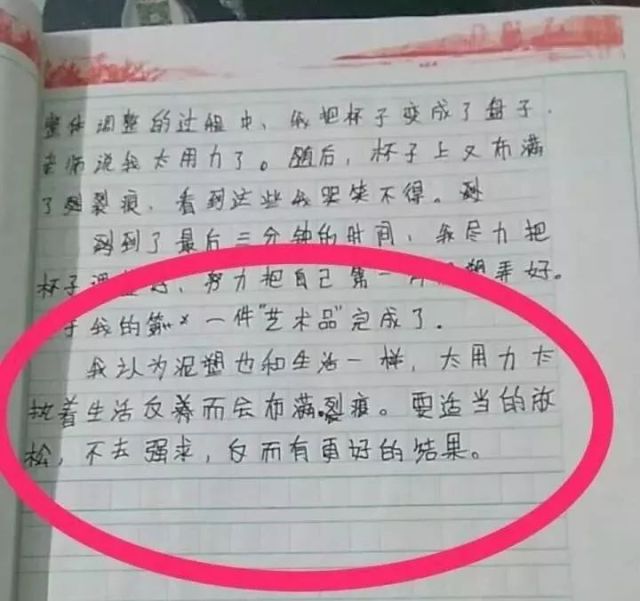 整体调整的过程中、我把杯子变成了盘子.
老师说我太用力了。随后，杯子上又布满
了裂痕，看到这些我哭笑不得。到
到了最后三分钟的时间，我尽力把
杯子调整好、努力把自己第一 弄好。
于我的第一件“艺术品”完成了.
我认为泥塑也和生活一样，太用力太
执着生活反而会布满裂痕。要适当的放
松，不去强求，反而有更好的结果。